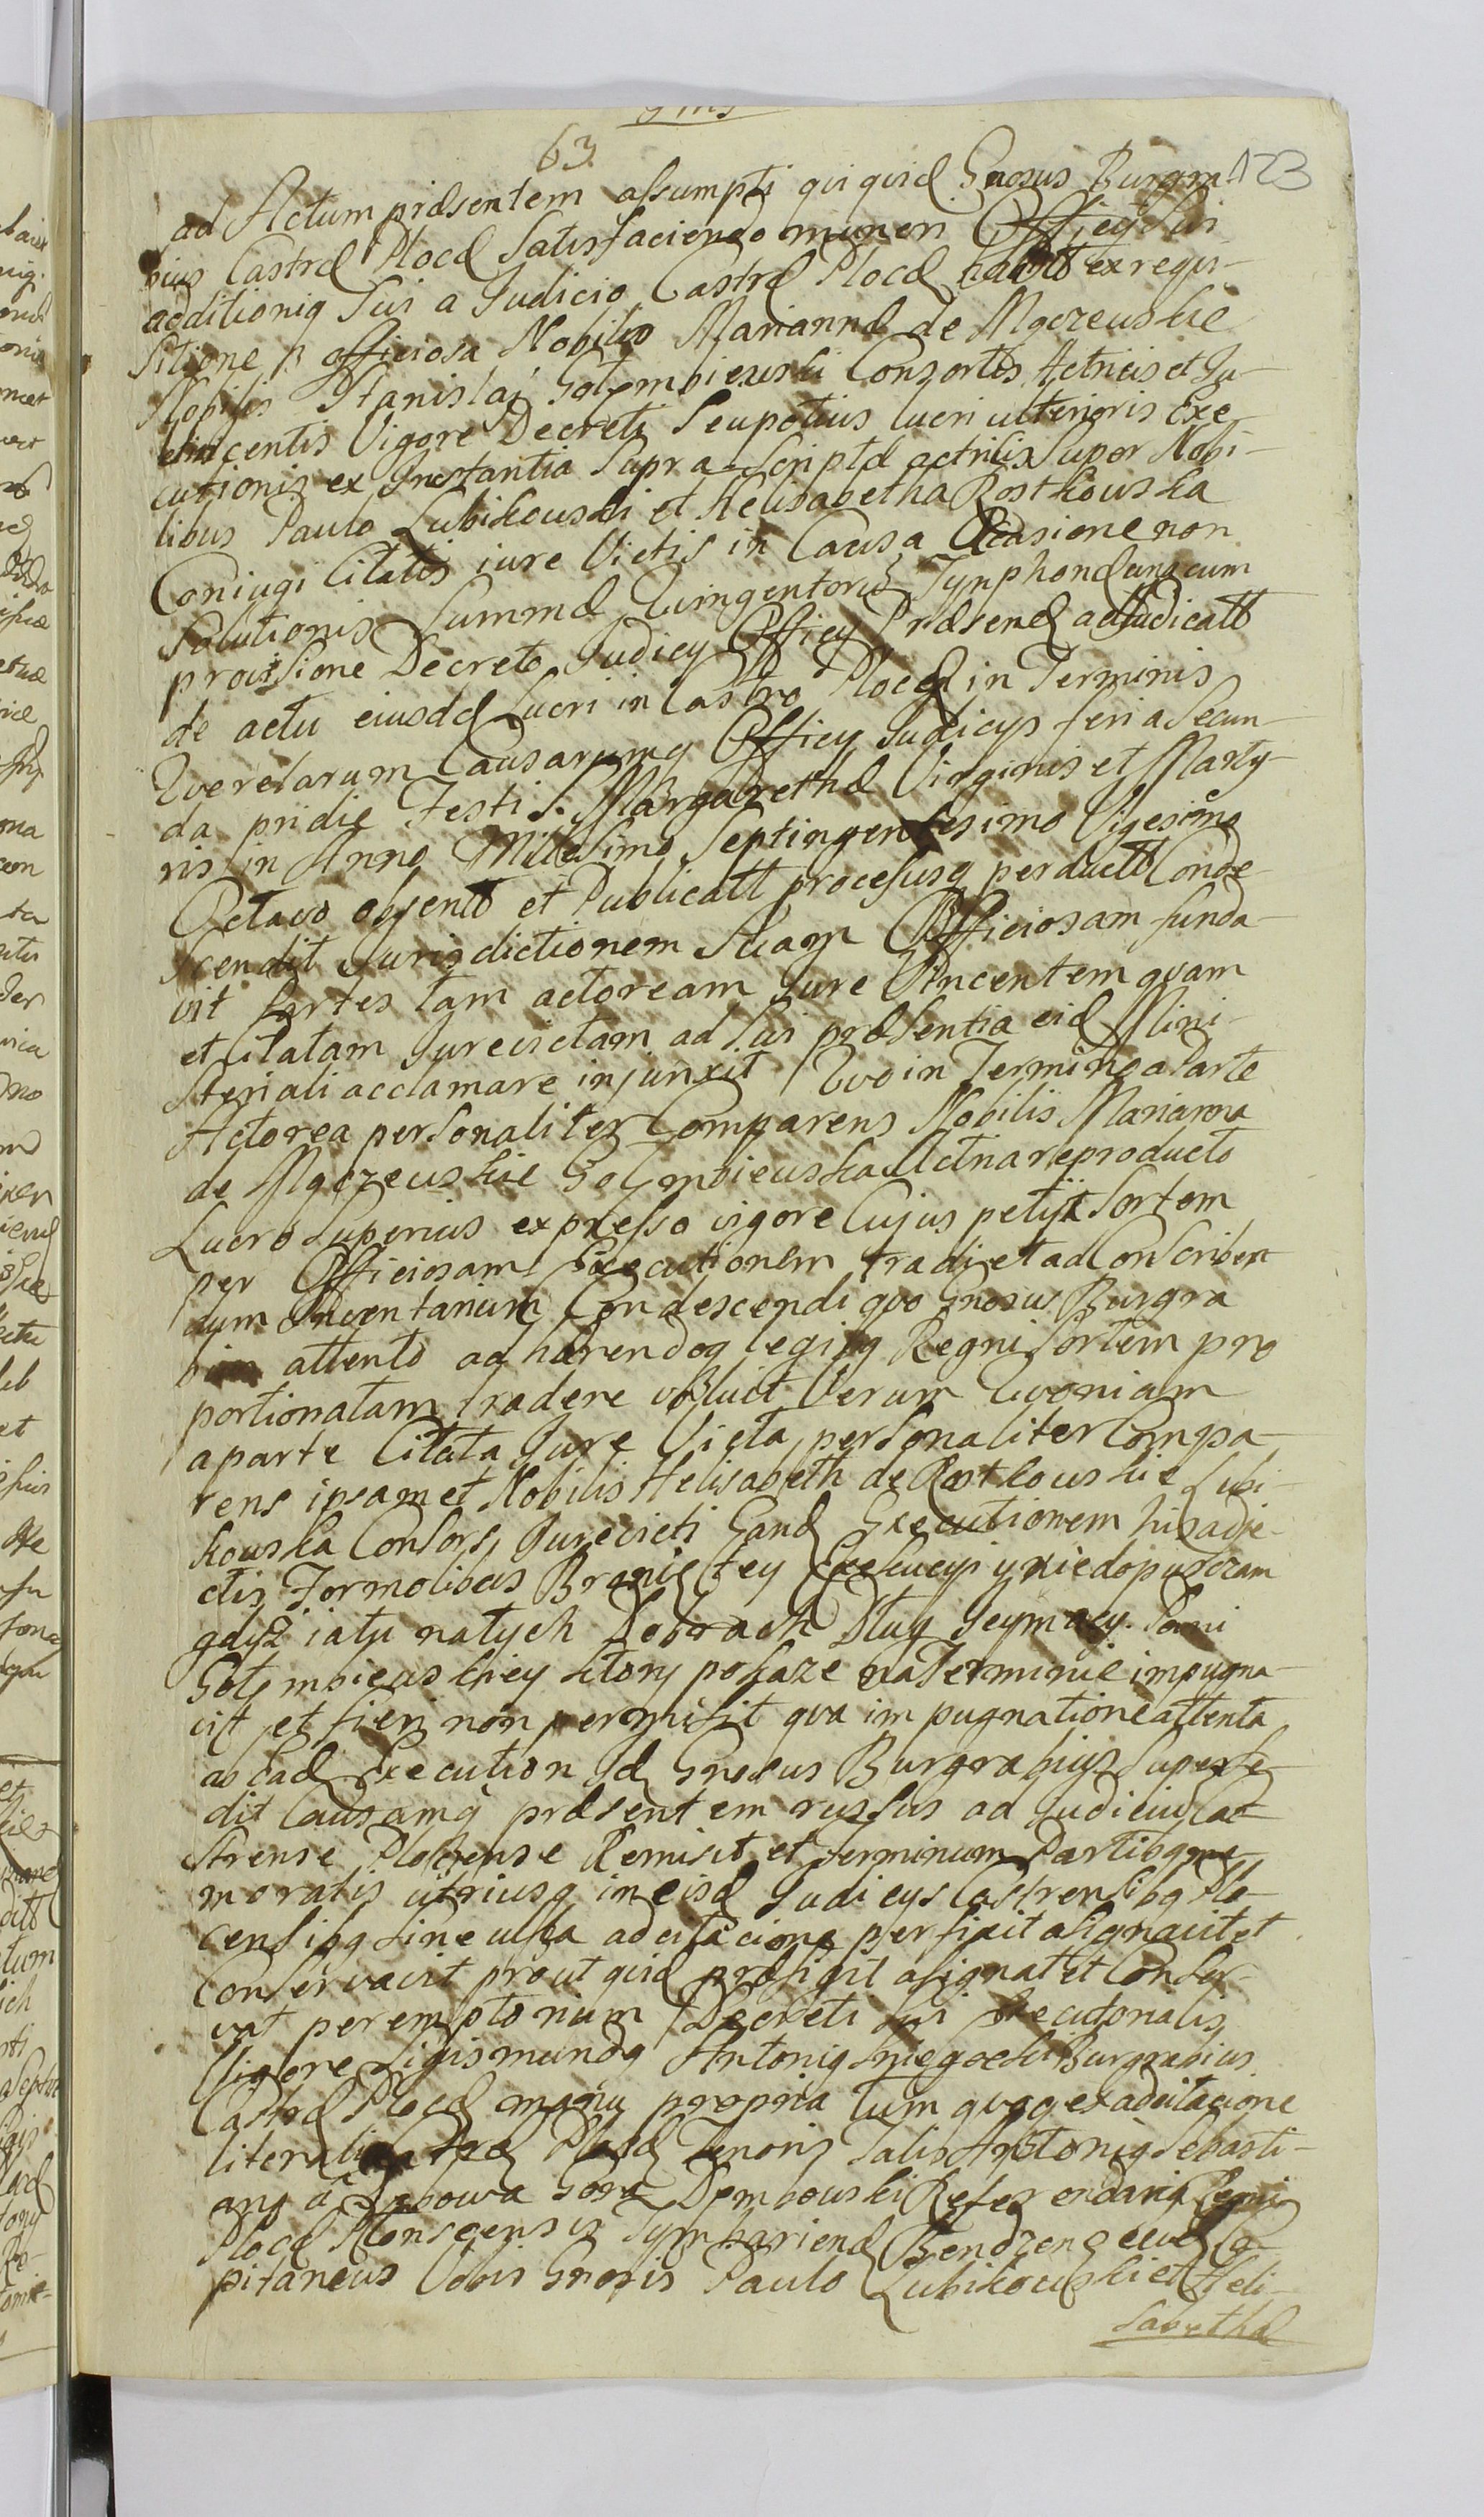 63.
123
ad Actum præsentem assumpti qui quid Gnosus Burgra-
bius Castrd Plocd Satisfaciendo muneri Officij Sui
additioniq Sui a Judicio Castrd Plocd habitt ex requi-
sitione p officiosa Nobilis Mariannd de Mgczewskie
Nobilis Stanislai Golembiewski Consortis Actricis et Ju-
vincentis Vigore Decreti Seu potius lucri ulterioris Exe-
cutionis ex Instantia Supra Scriptd actricis Super Nobi-
libus Paulo Lubikowski et Helisabetha Rostkowska
Coniugi Citatis iure Victis in Causa Occasione non
Solutionis Summd Quingentorũ Tynphond una cum
provisione Decreto Judicy Officy Præsend adjudicatt
de actu eiusdd Lucri in Castro Plocd in Terminis
Querelarum Causarumq Officy Judicys feria Secun-
da pridie Festi S. Margarethd Virginis et Marty-
ris in Anno Millesimo Septingentesimo Vigesimo
Octavo obtentt et Publicatt procesusq perductt Conde-
scendit Jurisdictionem Suam Officiosam funda-
vit Partes tam actoream Jure Vincentem quam
et Citatam Jurevictam ad Sui præsentia eid Mini-
steriali acclamare injunxit Quo in Termino a Parte
Actorea personaliter Comparens Nobilis Marianna
de Mgczewskie Golembiewska Actrix reproducto
Lucro Superius expresso vigore Cujus petijt Sortem
per Officiosam Executionem tradi et ad Conscriben
dum Inventarium Condescendi quo Gnosus Burgra
bius attento adhærendoq legibq Regni Sortem pro
portionatam tradere voluit Verum Quoniam
a parte Citata Jure Victa, personaliter Compa-
rens ipsamet Nobilis Helisabeth de Rostkowskie Lubi-
kowska Consors, Jurevicti Eand Executionem his adje-
ctis Formolibus Bronię tey Exekucyi y niedopuszczam
gdysz ia tu natych Dobrach Dług Jeymacy. Pani
Golembiewskiey ktory pokaze na Terminie impugna-
vit et fieri non permisit qva impugnatione attenta
ab Ead Execution Id Gnosus Burgrabius Superse-
dit Causamq præsentem russus ad Judiciũ Ca-
strense Plocense Remisit et Terminum Partibq me-
moratis utriusq in eisd Judicys Castrensibq Plo-
censibq sine ulla adcitacione perfixit asignavit et
Conservavit prout quid præfigit asignat et Conser-
vat peremptorium Decreti Sui Executorialis
Vigore Sigismundq Antoniq Sniegocki Burgrabius
Castrd Plocd manu propria Tum quoq ex adcitacione
literali Plocd Tenoris Talis Antoniq Sebasti-
anq a Dębowa Gora Dembowski Referendariq Regni
Plocd Ca-
pitaneus Vobis Gnosis Paulo Lubikowski et Heli-
sabethd